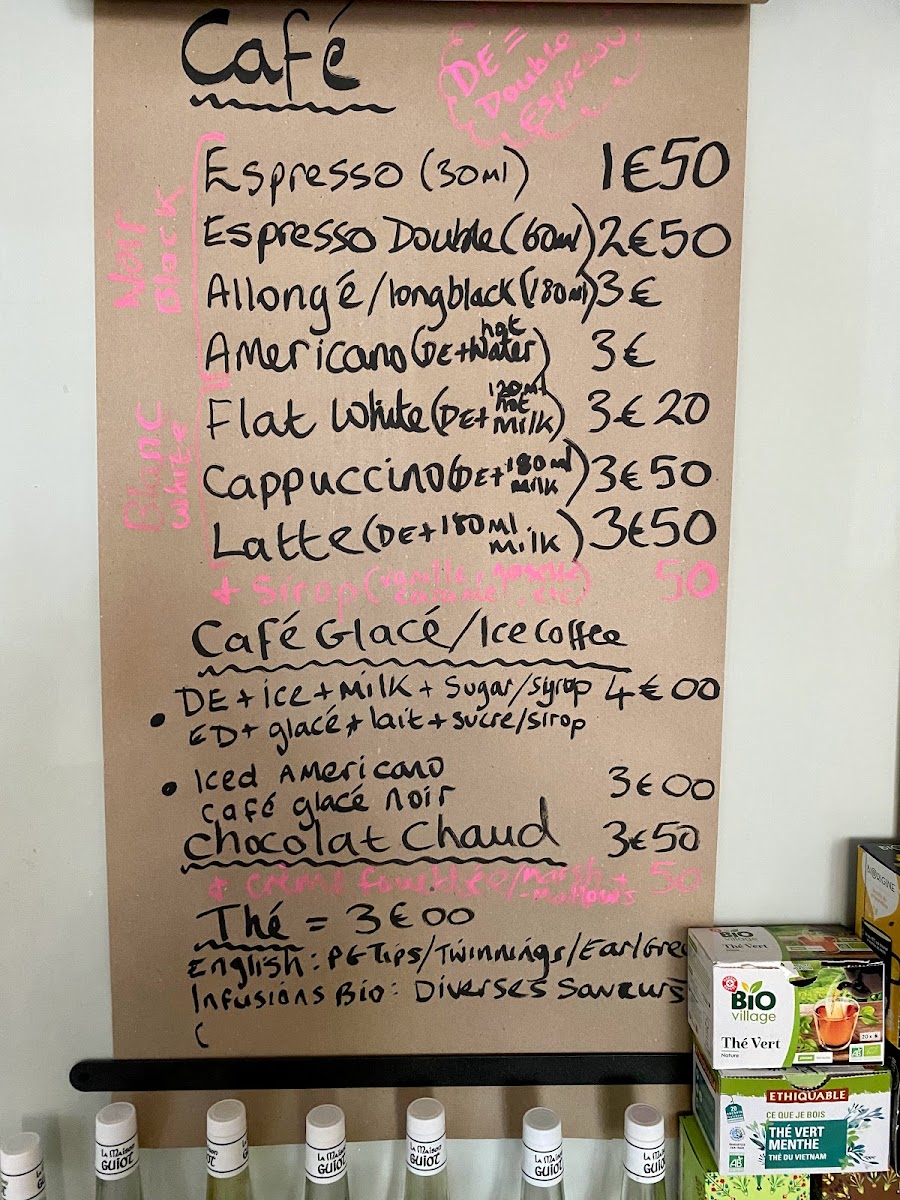 Café
DE =
Double
Espresso
Noir
Black
Espresso (30ml) 1€50
Espresso Double (60ml) 2€50
Allongé/longblack (180ml) 3€
Americano (DE+hot water) 3€
Blanc
White
Flat White (DE+120ml hot milk) 3€20
Cappuccino (DE+180ml milk) 3€50
Latte (DE+180ml milk) 3€50
+ Sirop (vanille, noisette 50
caramel, etc)
Café Glacé/Ice Coffee
• DE+ice+milk+sugar/syrop 4€00
ED+glacé+lait+sucre/sirop
• Iced Americano 3€00
café glacé noir
Chocolat Chaud 3€50
+ crème fouettée/marsh + 50
-mallows
Thé = 3€00
English: PG Tips/Twinnings/Earl Gre
Infusions Bio: Diverses Saveurs
(
BIO
village
Thé Vert
BIO
village
Thé Vert
Nature
20 x
AB
ETHIQUABLE
CE QUE JE BOIS
THÉ VERT
MENTHE
THÉ DU VIETNAM
20
AB
La Maison
GUIOT
La Maison
GUIOT
La Maison
GUIOT
La Maison
GUIOT
La Maison
GUIOT
La Maison
GUIOT
La Maison
GUIOT